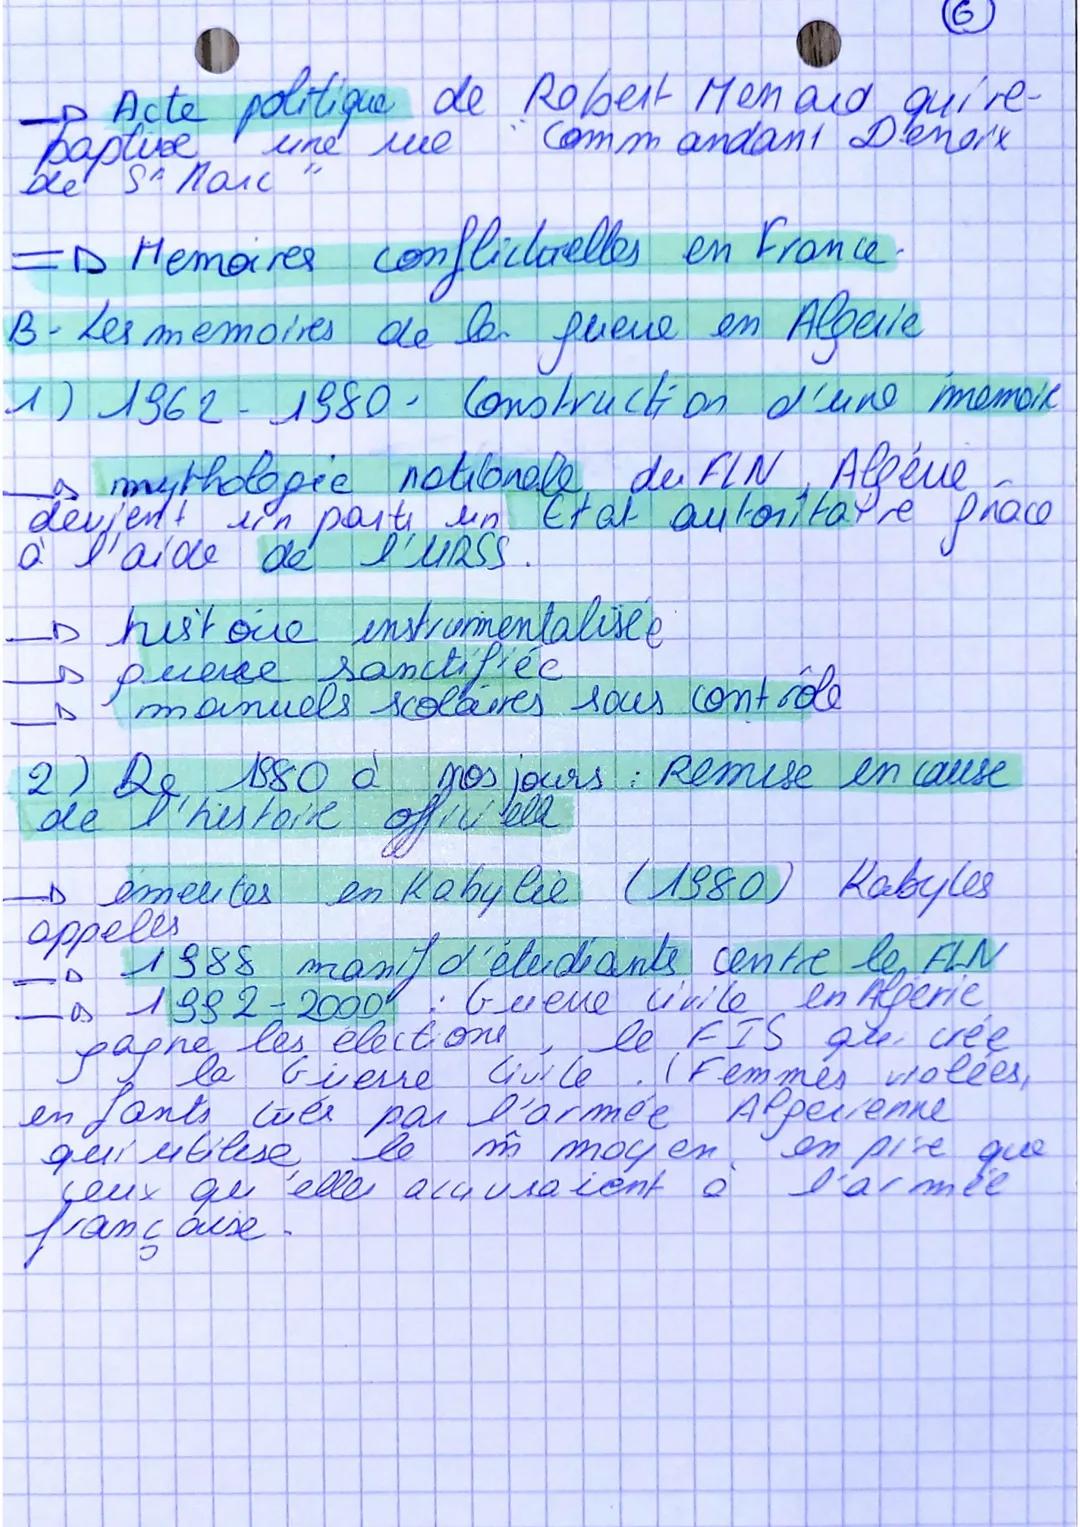 6
→ Acte politique de Robert Menard qui re-
baptise une rue "Commandant Denoix
de St Marc"
=> Memoires conflictuelles en France.
B - Les memoires de la guerre en Algerie
1) 1962 - 1980 - Construction d'une memoire
→ mythologie nationale du FLN, Algérie
devient un parti un Etat autoritaire grâce
à l'aide de l'URSS.
→ histoire instrumentalisée
→ guerre sanctifiée
→ manuels scolaires sous contrôle
2) De 1980 à nos jours : Remise en cause
de l'histoire officielle
→ émeutes en Kabylie (1980) Kabyles
appelés
→ 1988 manif d'étudiants contre le FLN
→ 1992-2000 : Guerre civile en Algérie
gagne les élections, le FIS qui crée
la Guerre Civile. (Femmes violées,
enfants tués par l'armée Algerienne
qui utilise le m̂ moyen en pire que
ceux qu'elles accusaient à l'armée
française.